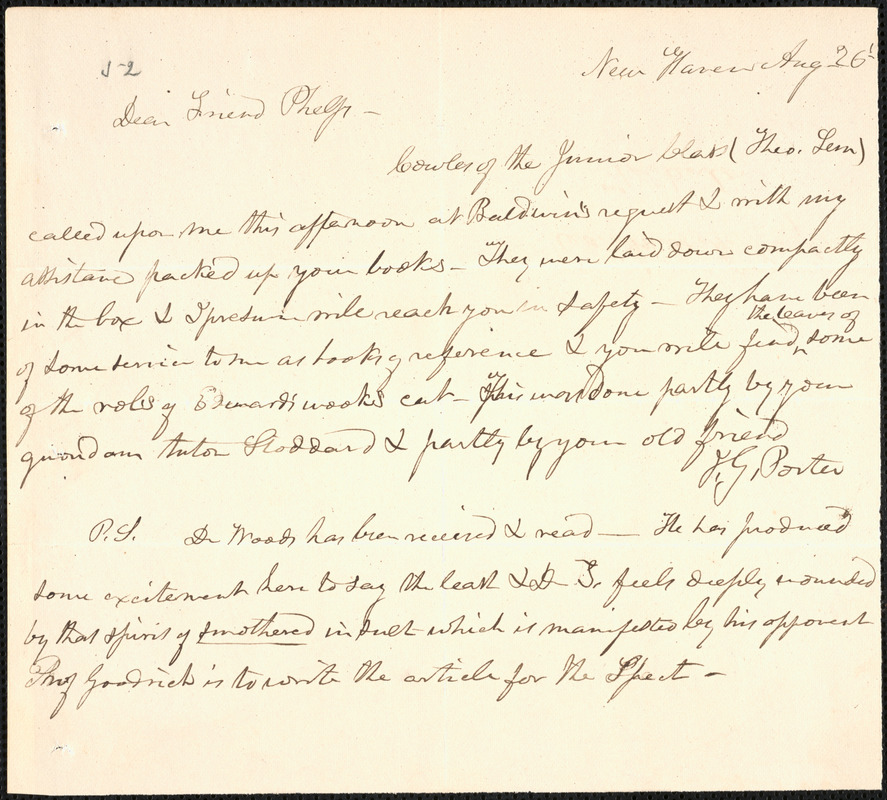 New Haven Aug 26
Dear Friend Phelps -
Cowles of the Junior Class (Theo. Sem)
called upon me this afternoon at Baldwin's request & with my
assistance packed up your books - They were laid down compactly
in the box & I presume will reach you in safety - They have been
of some service to me as books of reference & you will find the leaves of some
of the vols of Edwards works cut - This was done partly by your
quondam tutor Stoddard & partly by your old friend
T. G. Porter
P.S. Dr Woods has been received & read — He has produced
some excitement here to say the least & Dr T. feels deeply wounded
by that spirit of smothered insult which is manifested by his opponent
Prof Goodrich is to write the article for the Spect -